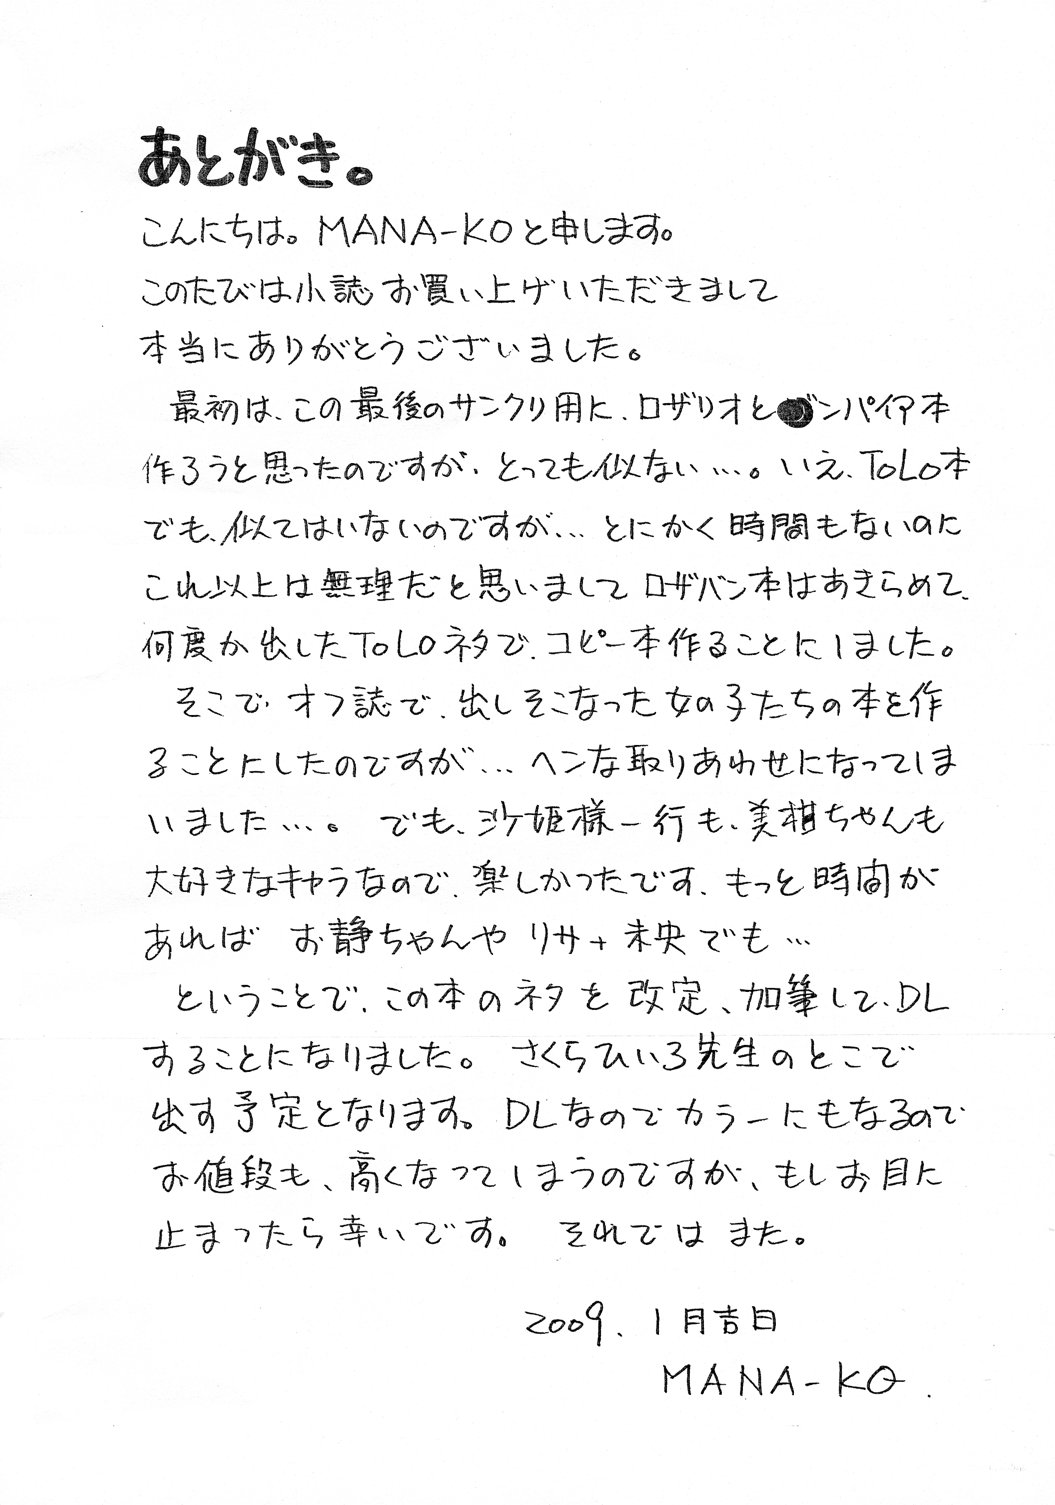 あとがき。
こんにちは。MANA-KOと申します。
このたびは小誌お買い上げいただきまして
本当にありがとうございました。
最初は、この最後のサンクリ用に、ロザリオとバンパイア本
作ろうと思ったのですが、とっても似ない…。いえ、ToLO本
でも、似てはいないのですが…とにかく時間もないのに
これ以上は無理だと思いましてロザバン本はあきらめて、
何度か出したToLOネタで、コピー本作ることにしました。
そこで オフ誌で、出しそこなった女の子たちの本を作
ることにしたのですが…ヘンな取りあわせになってしま
いました…。でも、沙姫様一行も、美柑ちゃんも
大好きなキャラなので、楽しかったです、もっと時間が
あれば お静ちゃんや リサ+未央でも…
ということで、この本のネタを改定、加筆して、DL
することになりました。さくらひいろ先生のとこで
出す予定となります。DLなのでカラーにもなるので
お値段も、高くなってしまうのですが、もしお目に
止まったら幸いです。 それではまた。
2009.1月吉日
MANA-KO.